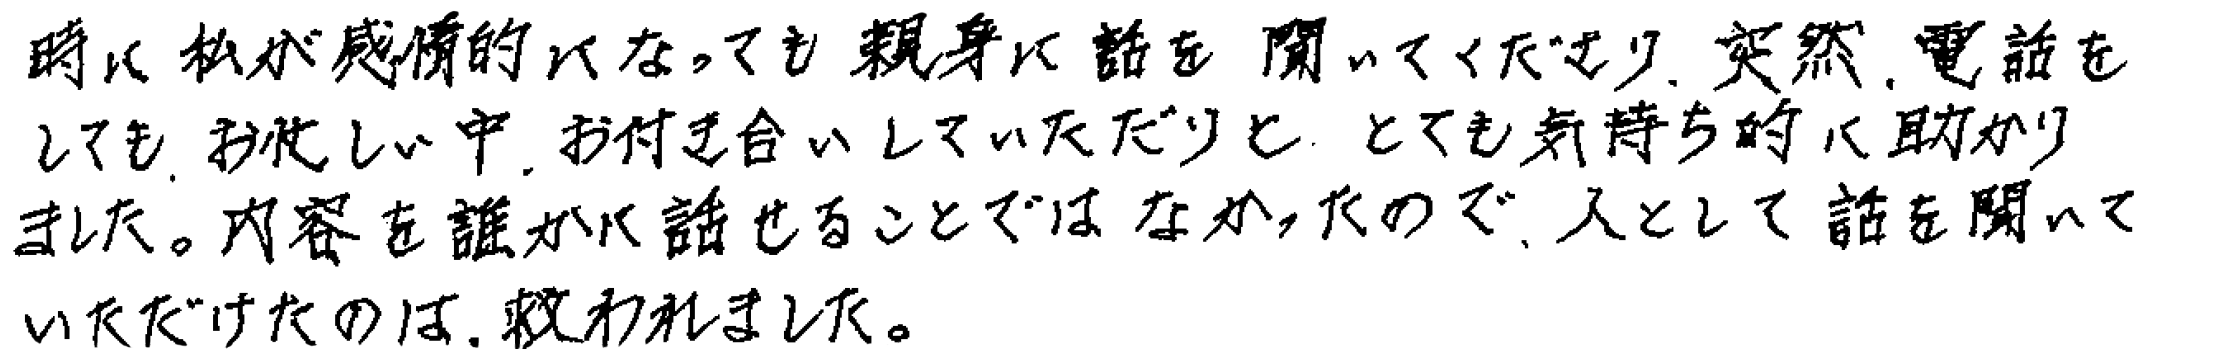 時に私が感情的になっても親身に話を聞いてくださり、突然、電話を
しても、お忙しい中、お付き合いしていただりと、とても気持ち的に助かり
ました。内容を誰かに話せることではなかったので、人として話を聞いて
いただけたのは、救われました。